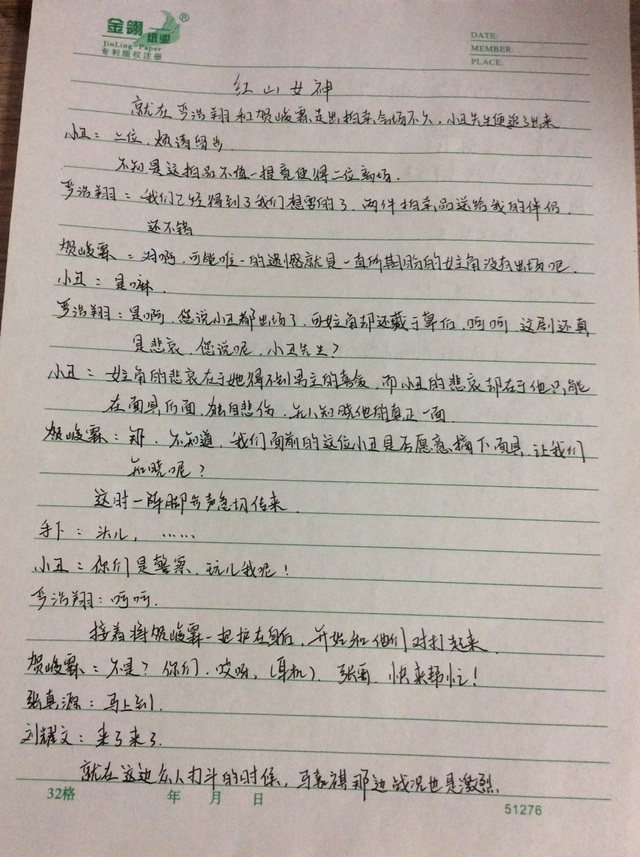 金翎纸业®
JinLing-Paper
专利版权注册
DATE:
MEMBER:
PLACE:
红山女神
就在严浩翔和贺峻霖走出拍卖会场不久，小丑先生便追了出来
小丑：二位，烦请留步，
不知是这拍品不值一提竟使得二位离场.
严浩翔：我们已经得到了我们想要的了，两件拍卖品送给我的伴侣，
还不错
贺峻霖：对啊，可能唯一的遗憾就是一直所期盼的女主角没有出场吧.
小丑：是嘛.
严浩翔：是啊，您说小丑都出场了，可女主角却还藏于幕后，呵呵，这剧还真
是悲哀，您说呢，小丑先生？
小丑：女主角的悲哀在于她得不到男主的喜爱，而小丑的悲哀却在于他只能
在面具后面，独自悲伤，无人知晓他的真正一面.
贺峻霖：那，不知道，我们面前的这位小丑是否愿意摘下面具，让我们
知晓呢？
这时一阵脚步声急切传来.
手下：头儿，……
小丑：你们是警察，玩儿我呢！
严浩翔：呵呵.
接着将贺峻霖一把护在身后，开始和他们对打起来.
贺峻霖：不是？你们，哎呀，（耳机），张哥，快来帮忙！
张真源：马上到.
刘耀文：来了来了.
就在这边众人打斗的时候，马嘉祺那边战况也是激烈.
32格 年 月 日 51276